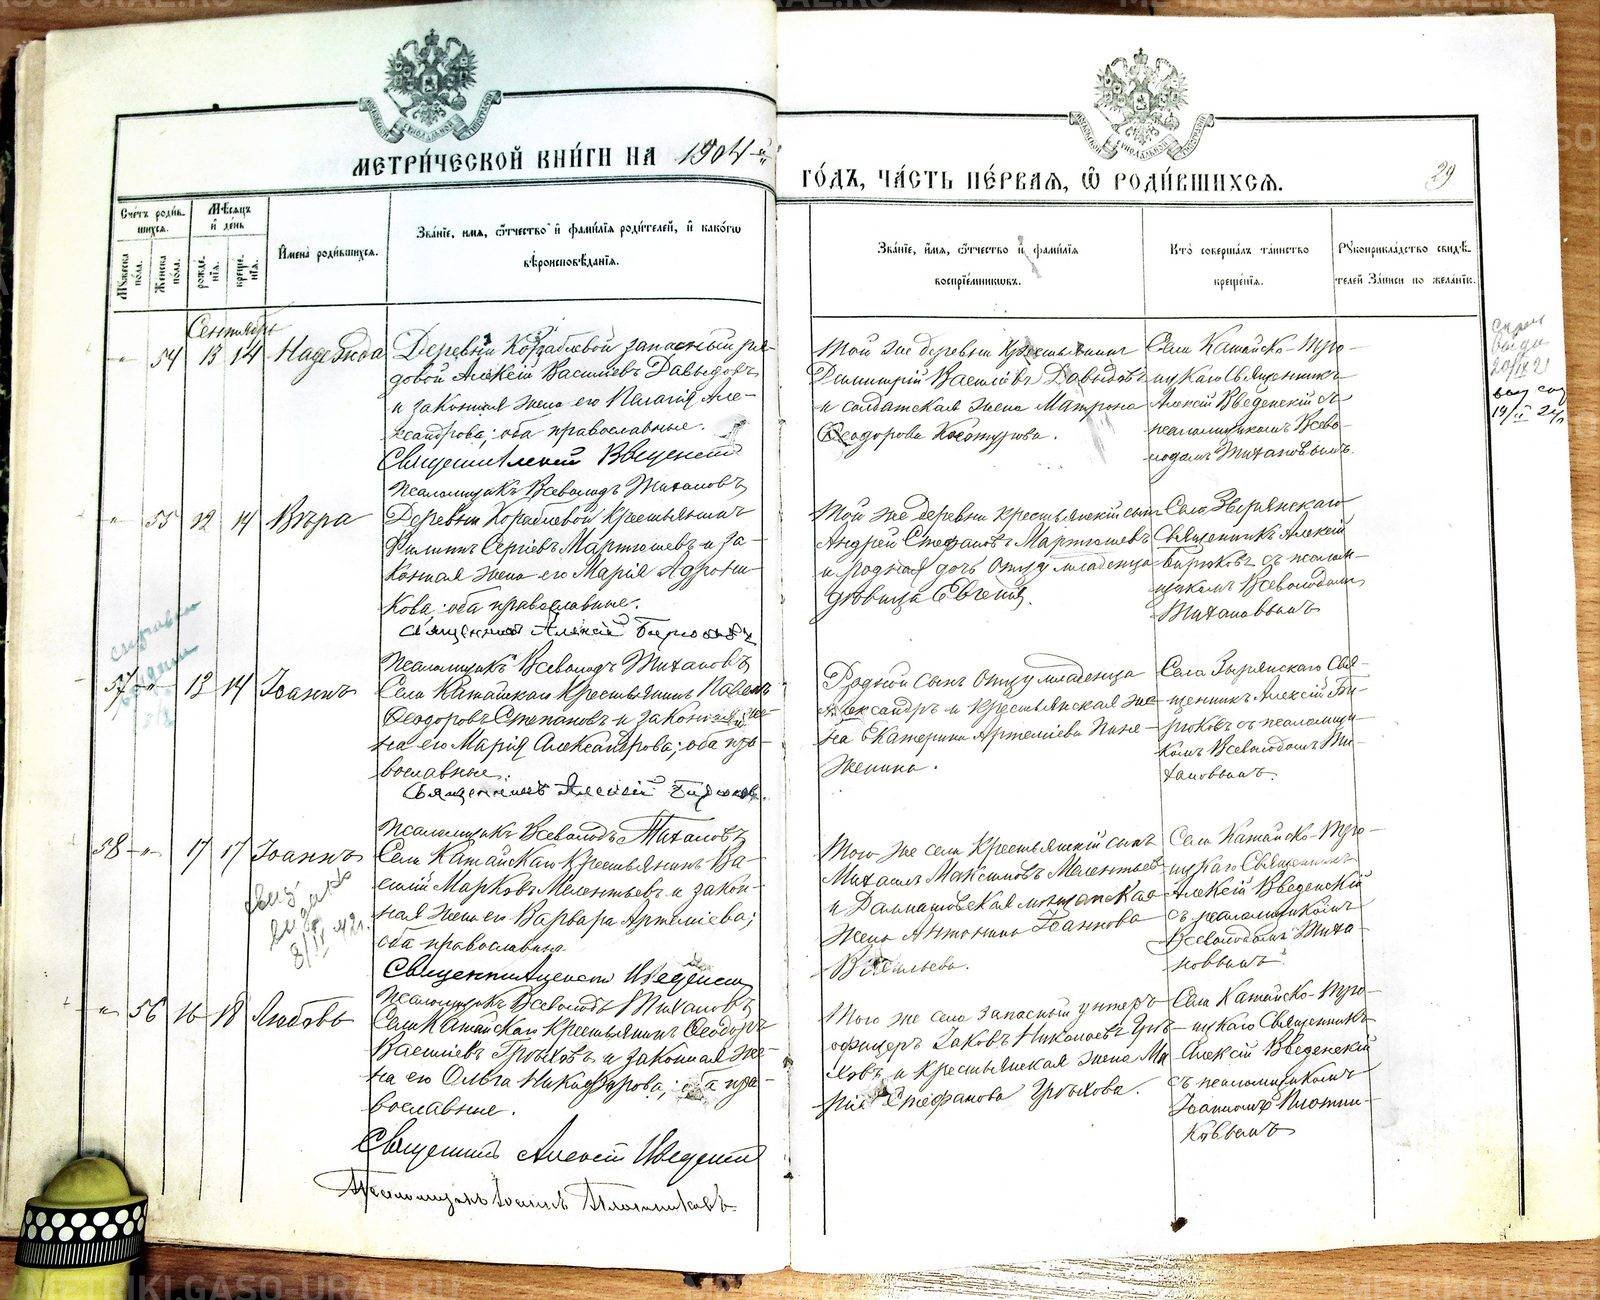 МЕТРИ́ЧЕСКОЙ КНИ́ГИ НА 1904 й
ГО́ДЪ, ЧА́СТЬ ПЕ́РВАЯ, Ѽ РОДИ́ВШИХСЯ.
29
Сче́тъ роди́в-
шихся.
Мѣ́сяцъ
и де́нь
Му́жеска по́ла.
Же́нска по́ла.
рожде́-
нїя.
креще́-
нїя.
И́мена роди́вшихся.
Зва́нїе, и́мя, ѻ҆́тчество и҆ фами́лїя роди́телей, и҆ како́гѡ
вѣроисповѣ́данїя.
Зва́нїе, и́мя, ѻ҆́тчество и҆ фами́лїя
воспрїе́мникѡвъ.
Кто̀ соверша́лъ та́инство
креще́нїя.
Рꙋкоприкла́дство свидѣ́-
телей за́писи по жела́нїю.
Сентябрь
" 54 13 14 Надежда
Деревни Кораблевой запасный ря-
довой Алексій Васильевъ Давыдовъ
и законная жена его Пелагія Але-
ксандрова; оба православные.
Священ. Алексій Введенскій
Псаломщикъ Всеволодъ Тихановъ
Той же деревни крестьянинъ
Димитрій Васильевъ Давыдовъ
и солдатская жена Матрона
Ѳеодорова
Села Катайско-Тро-
ицкаго Священникъ
Алексій Введенскій съ
псаломщикомъ Всево-
лодомъ Тихановымъ.
" 55 12 14 Вѣра
Деревни Кораблевой крестьянинъ
Филиппъ Сергіевъ Мартюшевъ и за-
конная жена его Марія Адрони-
кова; оба православные.
Священникъ Алексій Бирюковъ
Псаломщикъ Всеволодъ Тихановъ
Той же деревни крестьянскій сынъ
Андрей Стефановъ Мартюшевъ
и родная дочь отцу младенца
дѣвица Евгенія.
Села Зырянскаго
Священникъ Алексій
Бирюковъ съ псалом-
щикомъ Всеволодомъ
Тихановымъ
57 " 13 14 Іоаннъ
Села Катайскаго крестьянинъ Павелъ
Ѳеодоровъ Степановъ и законная же-
на его Марія Александрова; оба пра-
вославные.
Священникъ Алексій Бирюковъ.
Псаломщикъ Всеволодъ Тихановъ
Родной сынъ отцу младенца
Александръ и крестьянская же-
на Екатерина Артеміева
Села Зырянскаго Свя-
щенникъ Алексій Би-
рюковъ съ псаломщи-
комъ Всеволодомъ Ти-
хановымъ.
58 " 17 17 Іоаннъ
Села Катайскаго крестьянинъ Ва-
силій Марковъ Мелентьевъ и закон-
ная жена его Варвара Артеміева;
оба православные
Священникъ Алексій Введенскій
Псаломщикъ Всеволодъ Тихановъ
Того же села крестьянскій сынъ
Михаилъ Максимовъ Мелентьевъ
и Далматовская мещанская
жена Антонина Іоаннова
Васильева.
Села Катайско-Тро-
ицкаго Священникъ
Алексій Введенскій
съ псаломщикомъ
Всеволодомъ Тиха-
новымъ
" 56 16 18 Любовь
Села Катайскаго крестьянинъ Ѳеодоръ
Васильевъ Грѣховъ и законная же-
на его Ольга Никифорова; оба пра-
вославные.
Священникъ Алексій Введенскій
Псаломщикъ Іоаннъ Плотниковъ.
Того же села запасный унтеръ-
офицеръ Іаковъ Николаевъ Грѣ-
ховъ и крестьянская жена Ма-
рія Стефанова Грѣхова.
Села Катайско-Тро-
ицкаго Священникъ
Алексій Введенскій
съ псаломщикомъ
Іоанномъ Плотни-
ковымъ
METRIKI.GASO-URAL.RU